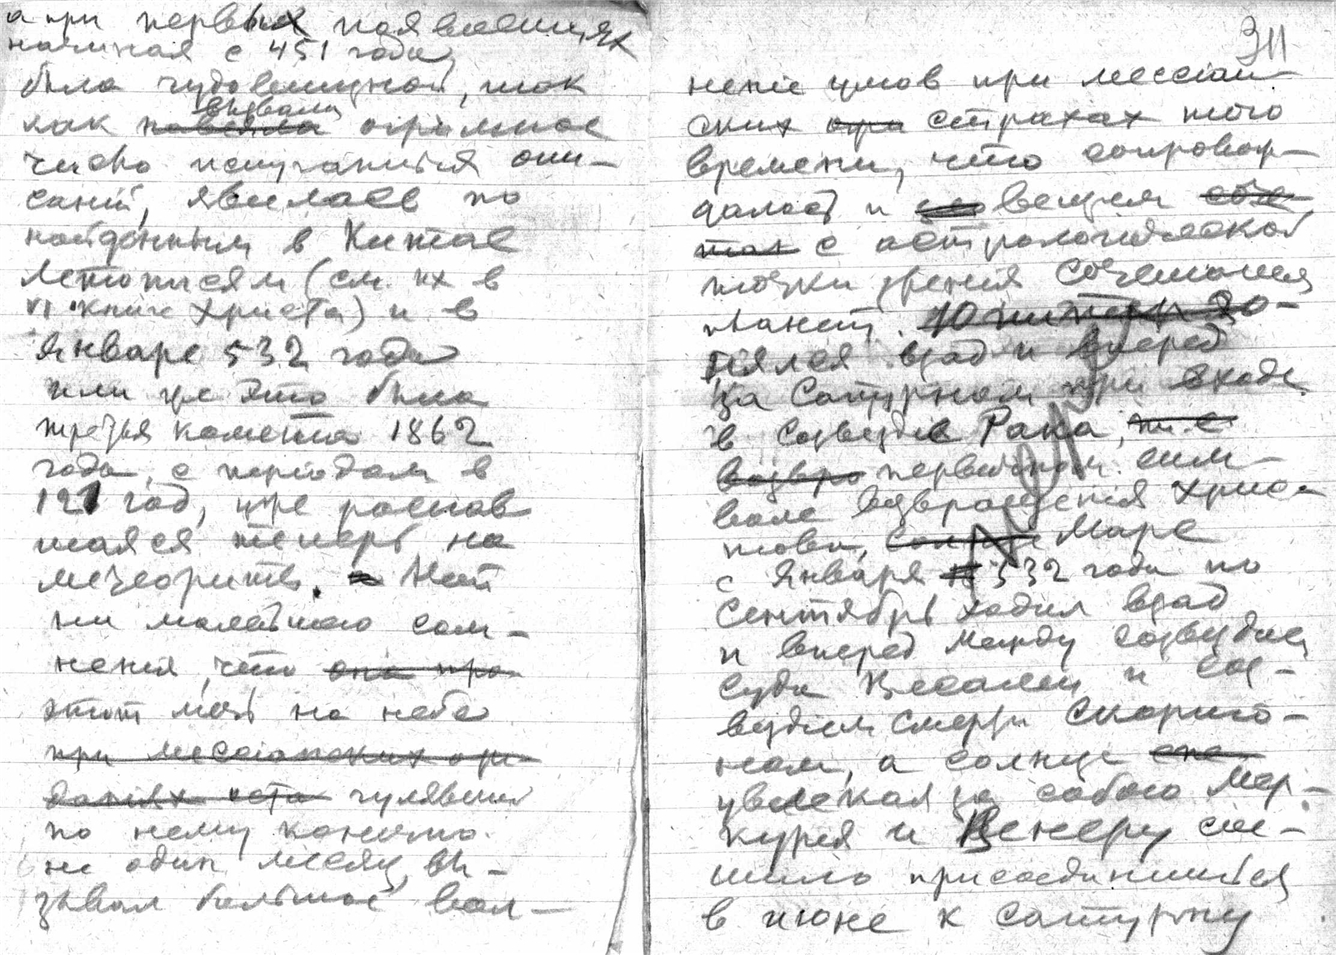 а при первых появлениях
начиная с 451 года,
была чудовищной, так
вызвала
как огромное
число испуганных опи-
саний, явилась по
найденным в Китае
летописям (см. их в
VI книге Христа) и в
январе 532 года
или же это была
третья комета 1862
года, с периодом в
121 год, уже распав
шаяся теперь на
метеориты. Нет
ни малейшего сом-
нения, что она при
этот меч на небе
при мессианских ожи-
даниях гулявший
по нему конечно
не один месяц, вы-
зывал большое вол-
311
нение умов при мессиан-
ских страхах того
времени, что сопровож-
далось и вещим
с астрологической
точки зрения сочетанием
планет. Юпитер го-
нялся взад и вперед
за Сатурном при входе
в созвездие Рака,
первичном сим-
воле возвращения Хрис-
това, Марс
с января 532 года по
сентябрь ходил взад
и вперед между созвездием
суда Весами и соз-
вездием смерти Скорпио-
ном, а солнце
увлекая за собою Мер-
курия и Венеру спе-
шило присоединиться
в июне к Сатурну